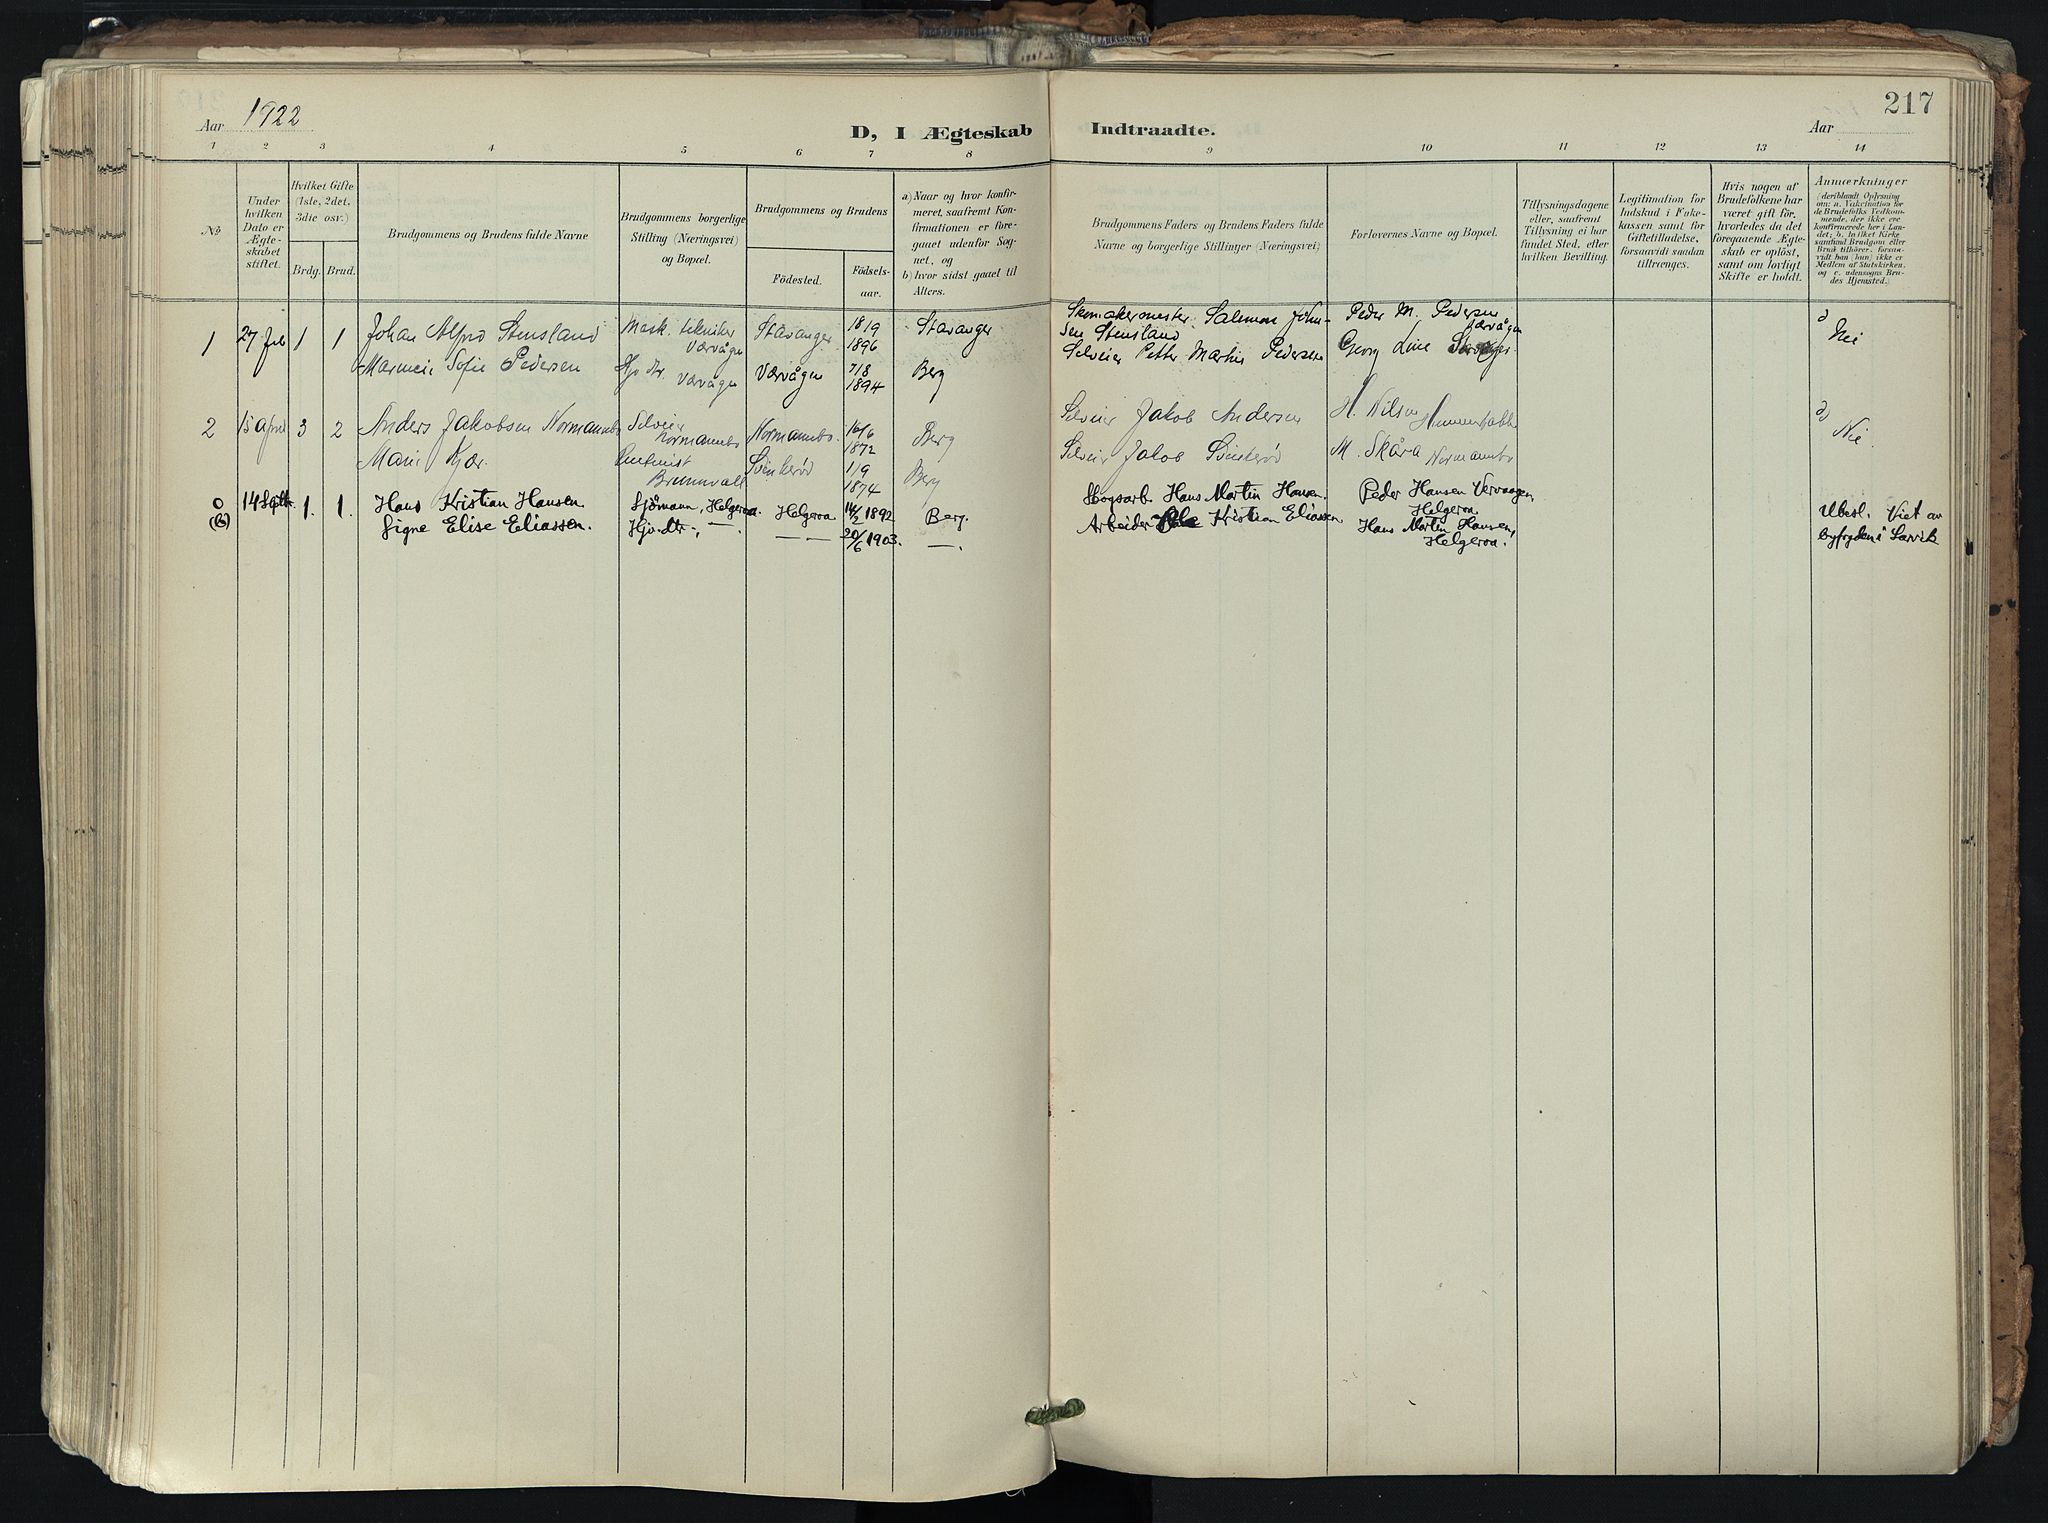 217
Aar 1922
D, I Ægteskab Indtraadte.
Aar
1 2 3 4 5 6 7 8 9 10 11 12 13 14
No
Under hvilken Dato er Ægteskabet stiftet.
Hvilket Gifte (1ste, 2det, 3die osv.)
Brdg. Brud.
Brudgommens og Brudens fulde Navne
Brudgommens borgerlige Stilling (Næringsvei) og Bopæl.
Brudgommens og Brudens
Födested.
Födsels-aar.
a) Naar og hvor konfirmeret, saafremt Konfirmationen er foregaaet udenfor Sognet, og
b) hvor sidst gaaet til Alters.
Brudgommens Faders og Brudens Faders fulde Navne og borgerlige Stillinger (Næringsvei)
Forlovernes Navne og Bopæl.
Tillysningsdagene eller, saafremt Tillysning ei har fundet Sted, efter hvilken Bevilling.
Legitimation for Indskud i Enkekassen samt for Giftetilladelse, forsaavidt saadan tiltrænges.
Hvis nogen af Brudefolkene har været gift för, hvorledes da det foregaaende Ægteskab er oplöst, samt om lovligt Skifte er holdt.
Anmærkninger
(deriblandt Oplysning om: a. Vakcination for de Brudefolks Vedkommende, der ikke ere konfirmerede her i Landet; b. hvilket Kirkesamfund Brudgom eller Brud tilhörer, forsaavidt han (hun) ikke er Medlem af Statskirken, og c. udensogns Brudes Hjemsted.)
1 27 feb 1 1 Johan Alfred Stensland Mask. tekniker Værvågen Stavanger 18/9 1896 Stavanger
Skomakermester Salomon John-
sen Stensland
Peder M. Pedersen Værvågen
a) Nei
Sofie Pedersen Hjv. dtr. Værvågen Værvågen 7/8 1894 Berg
Selveier Petter Martin Pedersen
Georg
2 15 april 3 2 Anders Jakobsen Normannbo Selveier Normannbo Normannbo. 16/6 1872 Berg
Selveier Jakob Andersen
H. Nilsen
a) Nei
Marie Kjær. 1/9 1874 Berg
Selveier Jakob
M. Skåra Normannbo
0 14 Septbr. 1. 1. Hans Kristian Hansen. Sjömann, Helgeroa. Helgeroa 14/2 1892 Berg.
Skogsarb. Hans Martin Hansen.
Peder Hansen Vervaagen, Helgeroa
Ubesl. Viet av
byfogden i Larvik
(B) Signe Elise Eliassen. Hjv. dtr., — — — 20/6 1903. —.
Arbeider Ole Kristian Eliassen
Hans Martin Hansen, Helgeroa.